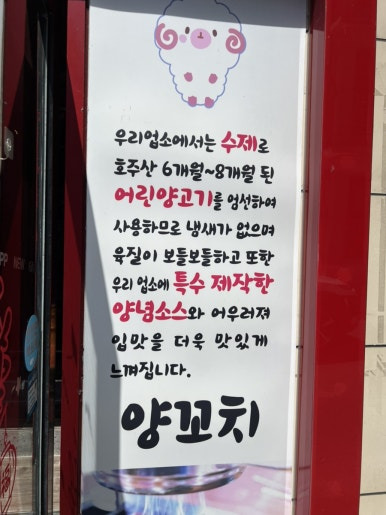 우리업소에서는 수제로
호주산 6개월~8개월 된
어린양고기를 엄선하여
사용하므로 냄새가 없으며
육질이 보들보들하고 또한
우리 업소에 특수 제작한
양념소스와 어우러져
입맛을 더욱 맛있게
느껴집니다.
양꼬치